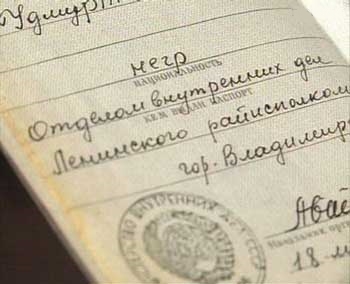 Удмурт
негр
НАЦИОНАЛЬНОСТЬ
Отделом внутренних дел
КЕМ ВЫДАН ПАСПОРТ
Ленинского райисполком
гор. Владимир
Авай
Начальник орг
18
ВНУТРЕННИХ ДЕЛ СССР